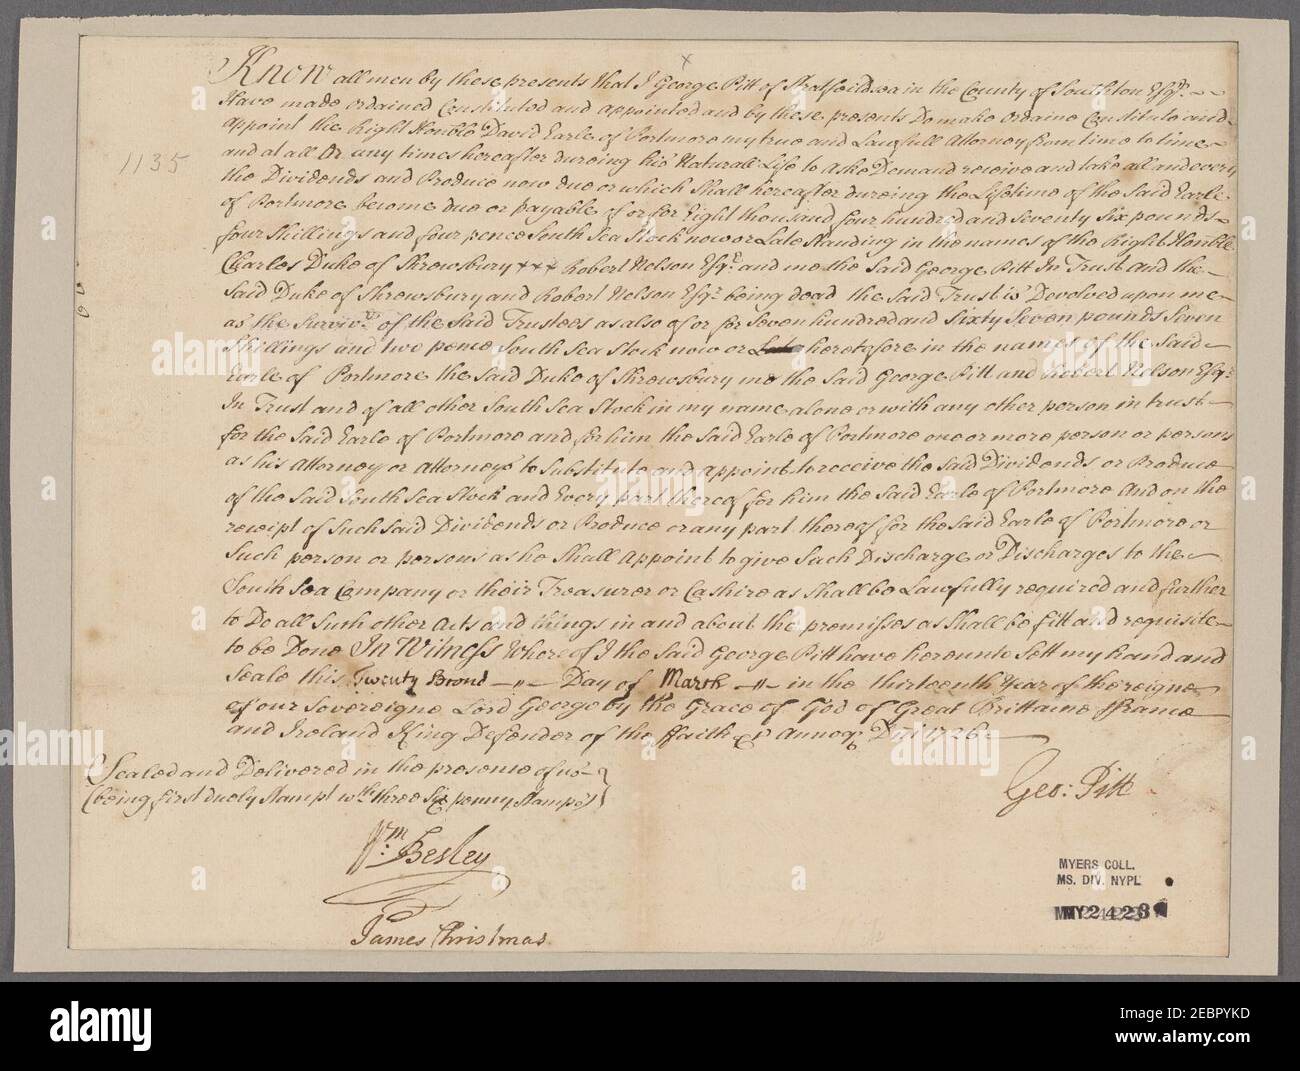 x
Know all men by these presents that I George Pitt of Stratfeildsea in the County of Southton Esqr.
Have made ordained Constituted and appointed and by these presents Do make ordaine Constitute and
Appoint the Right Honble David Earle of Portmore my true and Lawfull Attorney from time to time
and at all Or any times hereafter dureing his Naturall Life to Aske Demand receive and take all and every
the Dividends and Produce now due or which Shall hereafter dureing the Lifetime of the Said Earle
of Portmore become due or payable of or for Eight thousand four hundred and Seventy Six pounds
four Shillings and four pence South Sea Stock now or Late Standing in the names of the Right Honble
Charles Duke of Shrewsbury xxx Robert Nelson Esqr. and me the Said George Pitt In Trust And the
Said Duke of Shrewsbury and Robert Nelson Esqr. being dead the Said Trust is Devolved upon me
as the Surviv.r of the Said Trustees as also of or for Seven hundred and Sixty Seven pounds Seven
Shillings and two pence South Sea Stock now or heretofore in the names of the Said
Earle of Portmore the Said Duke of Shrewsbury me the Said George Pitt and Robert Nelson Esqr.
In Trust and of all other South Sea Stock in my name alone or with any other person in trust
for the Said Earle of Portmore and for him the Said Earle of Portmore one or more person or persons
as his Attorney or Attorneys to Substitute and Appoint to receive the Said Dividends or Produce
of the Said South Sea Stock and Every part thereof for him the Said Earle of Portmore And on the
receipt of Such Said Dividends or Produce or any part thereof for the Said Earle of Portmore or
Such person or persons as he Shall Appoint to give Such Discharge or Discharges to the
South Sea Company or their Treasurer or Cashire as Shall be Lawfully required and further
to Do all Such other Acts and things in and about the premisses as Shall be fitt and requisite
to be Done In Witness Where of I the Said George Pitt have hereunto Sett my hand and
Seale this Twenty Second Day of March in the thirteenth Year of the reigne
of our Sovereigne Lord George by the Grace of God of Great Brittaine ffrance
and Ireland King Defender of the ffaith &c Annoq. Dni 1726
Sealed and Delivered in the presence of us
(being first duely Stampt wth. three Six penny Stamps)
Geo: Pitt
Wm. Besley
James Christmas
1135
MYERS COLL.
MS. DIV. NYPL
MY2423
alamy
Image ID: 2EBPYKD
www.alamy.com